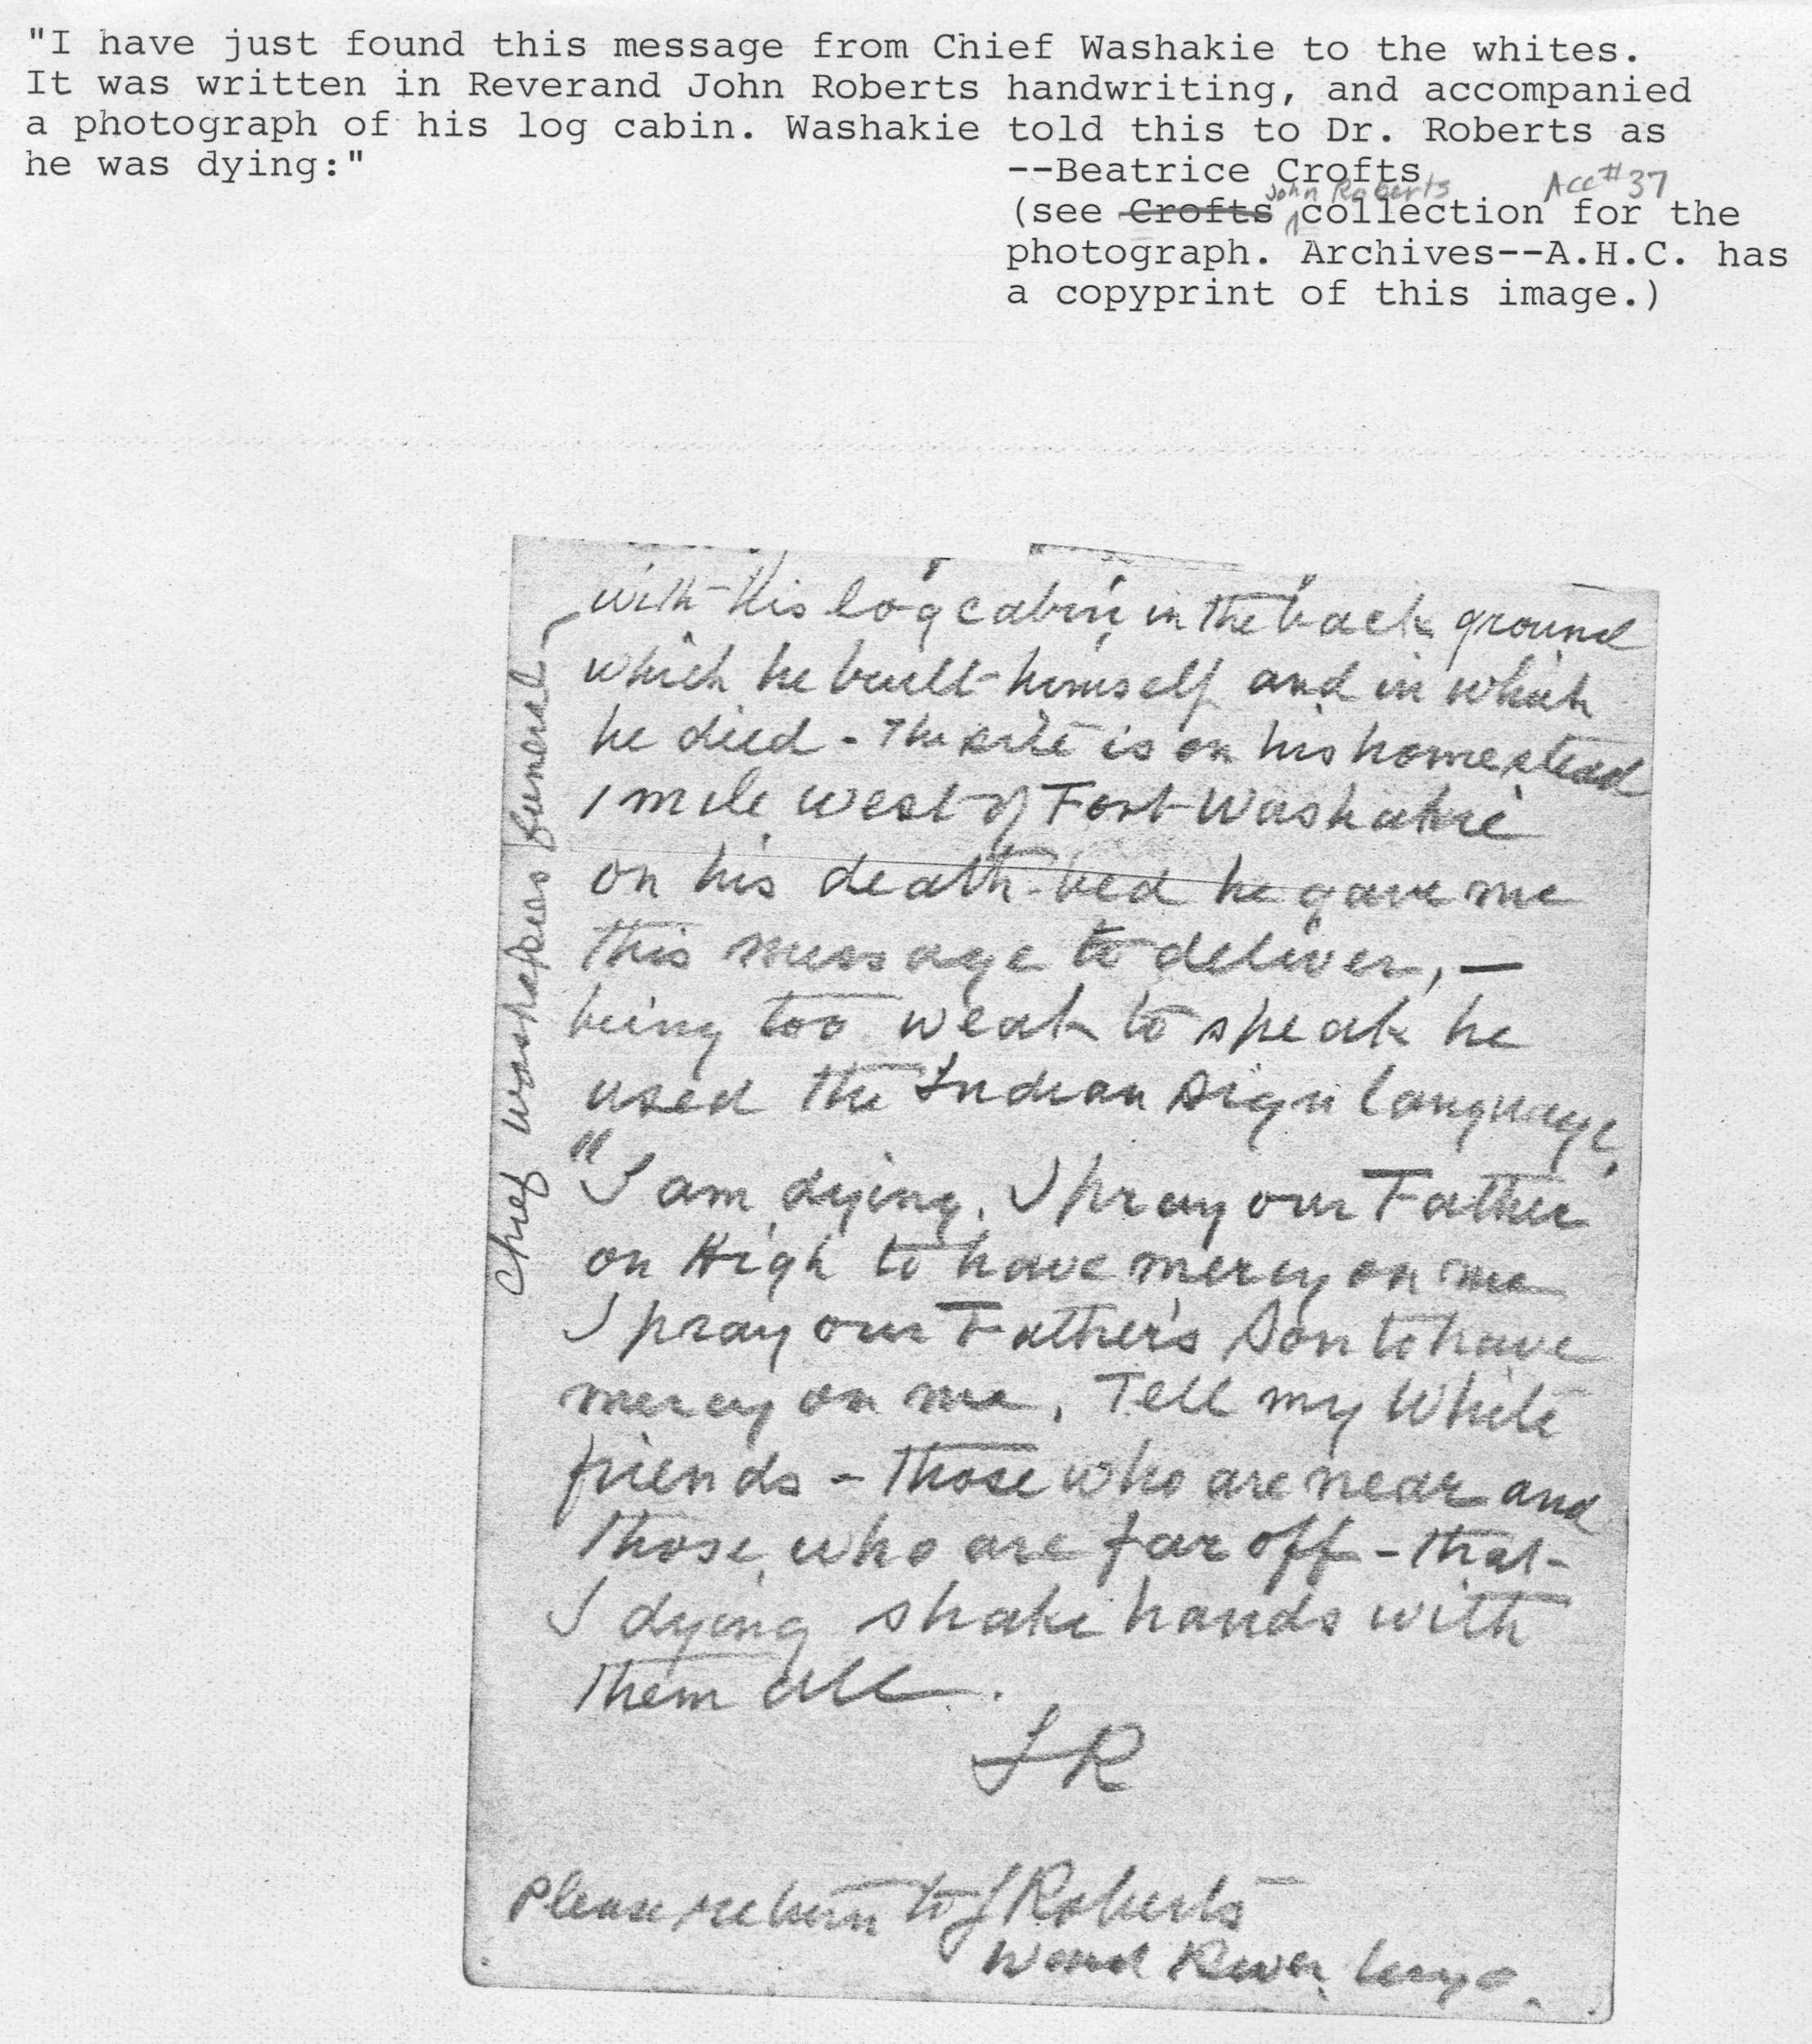 "I have just found this message from Chief Washakie to the whites.
It was written in Reverand John Roberts handwriting, and accompanied
a photograph of his log cabin. Washakie told this to Dr. Roberts as
he was dying:"
--Beatrice Crofts
John Roberts Acc # 37
(see Crofts collection for the
photograph. Archives--A.H.C. has
a copyprint of this image.)
Chief Washakies funeral -
with his log cabin in the back ground
which he built himself and in which
he died - The site is on his homestead
1 mile west of Fort Washakie
on his death-bed he gave me
this message to deliver, —
being too weak to speak he
used the Indian sign language,
"I am dying. I pray our Father
on High to have mercy on me
I pray our Father's Son to have
mercy on me. Tell my White
friends - those who are near and
those who are far off - that -
I dying shake hands with
them all.
JR
Please return to J Roberts
Wind River Wyo.